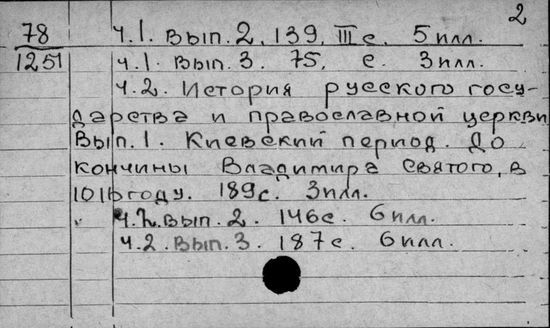 2
78 ч.1. Вып. 2. 139, III с. 5 илл.
1251 ч.1. Вып. 3. 75, с. 3 илл.
ч.2. История русского госу-
дарства и православной церкви
Вып. 1. Киевский период. До
кончины Владимира святого, в
1015 году. 189с. 3 илл.
ч.2. Вып. 2. 146с. 6 илл.
ч.2. Вып. 3. 187с. 6 илл.